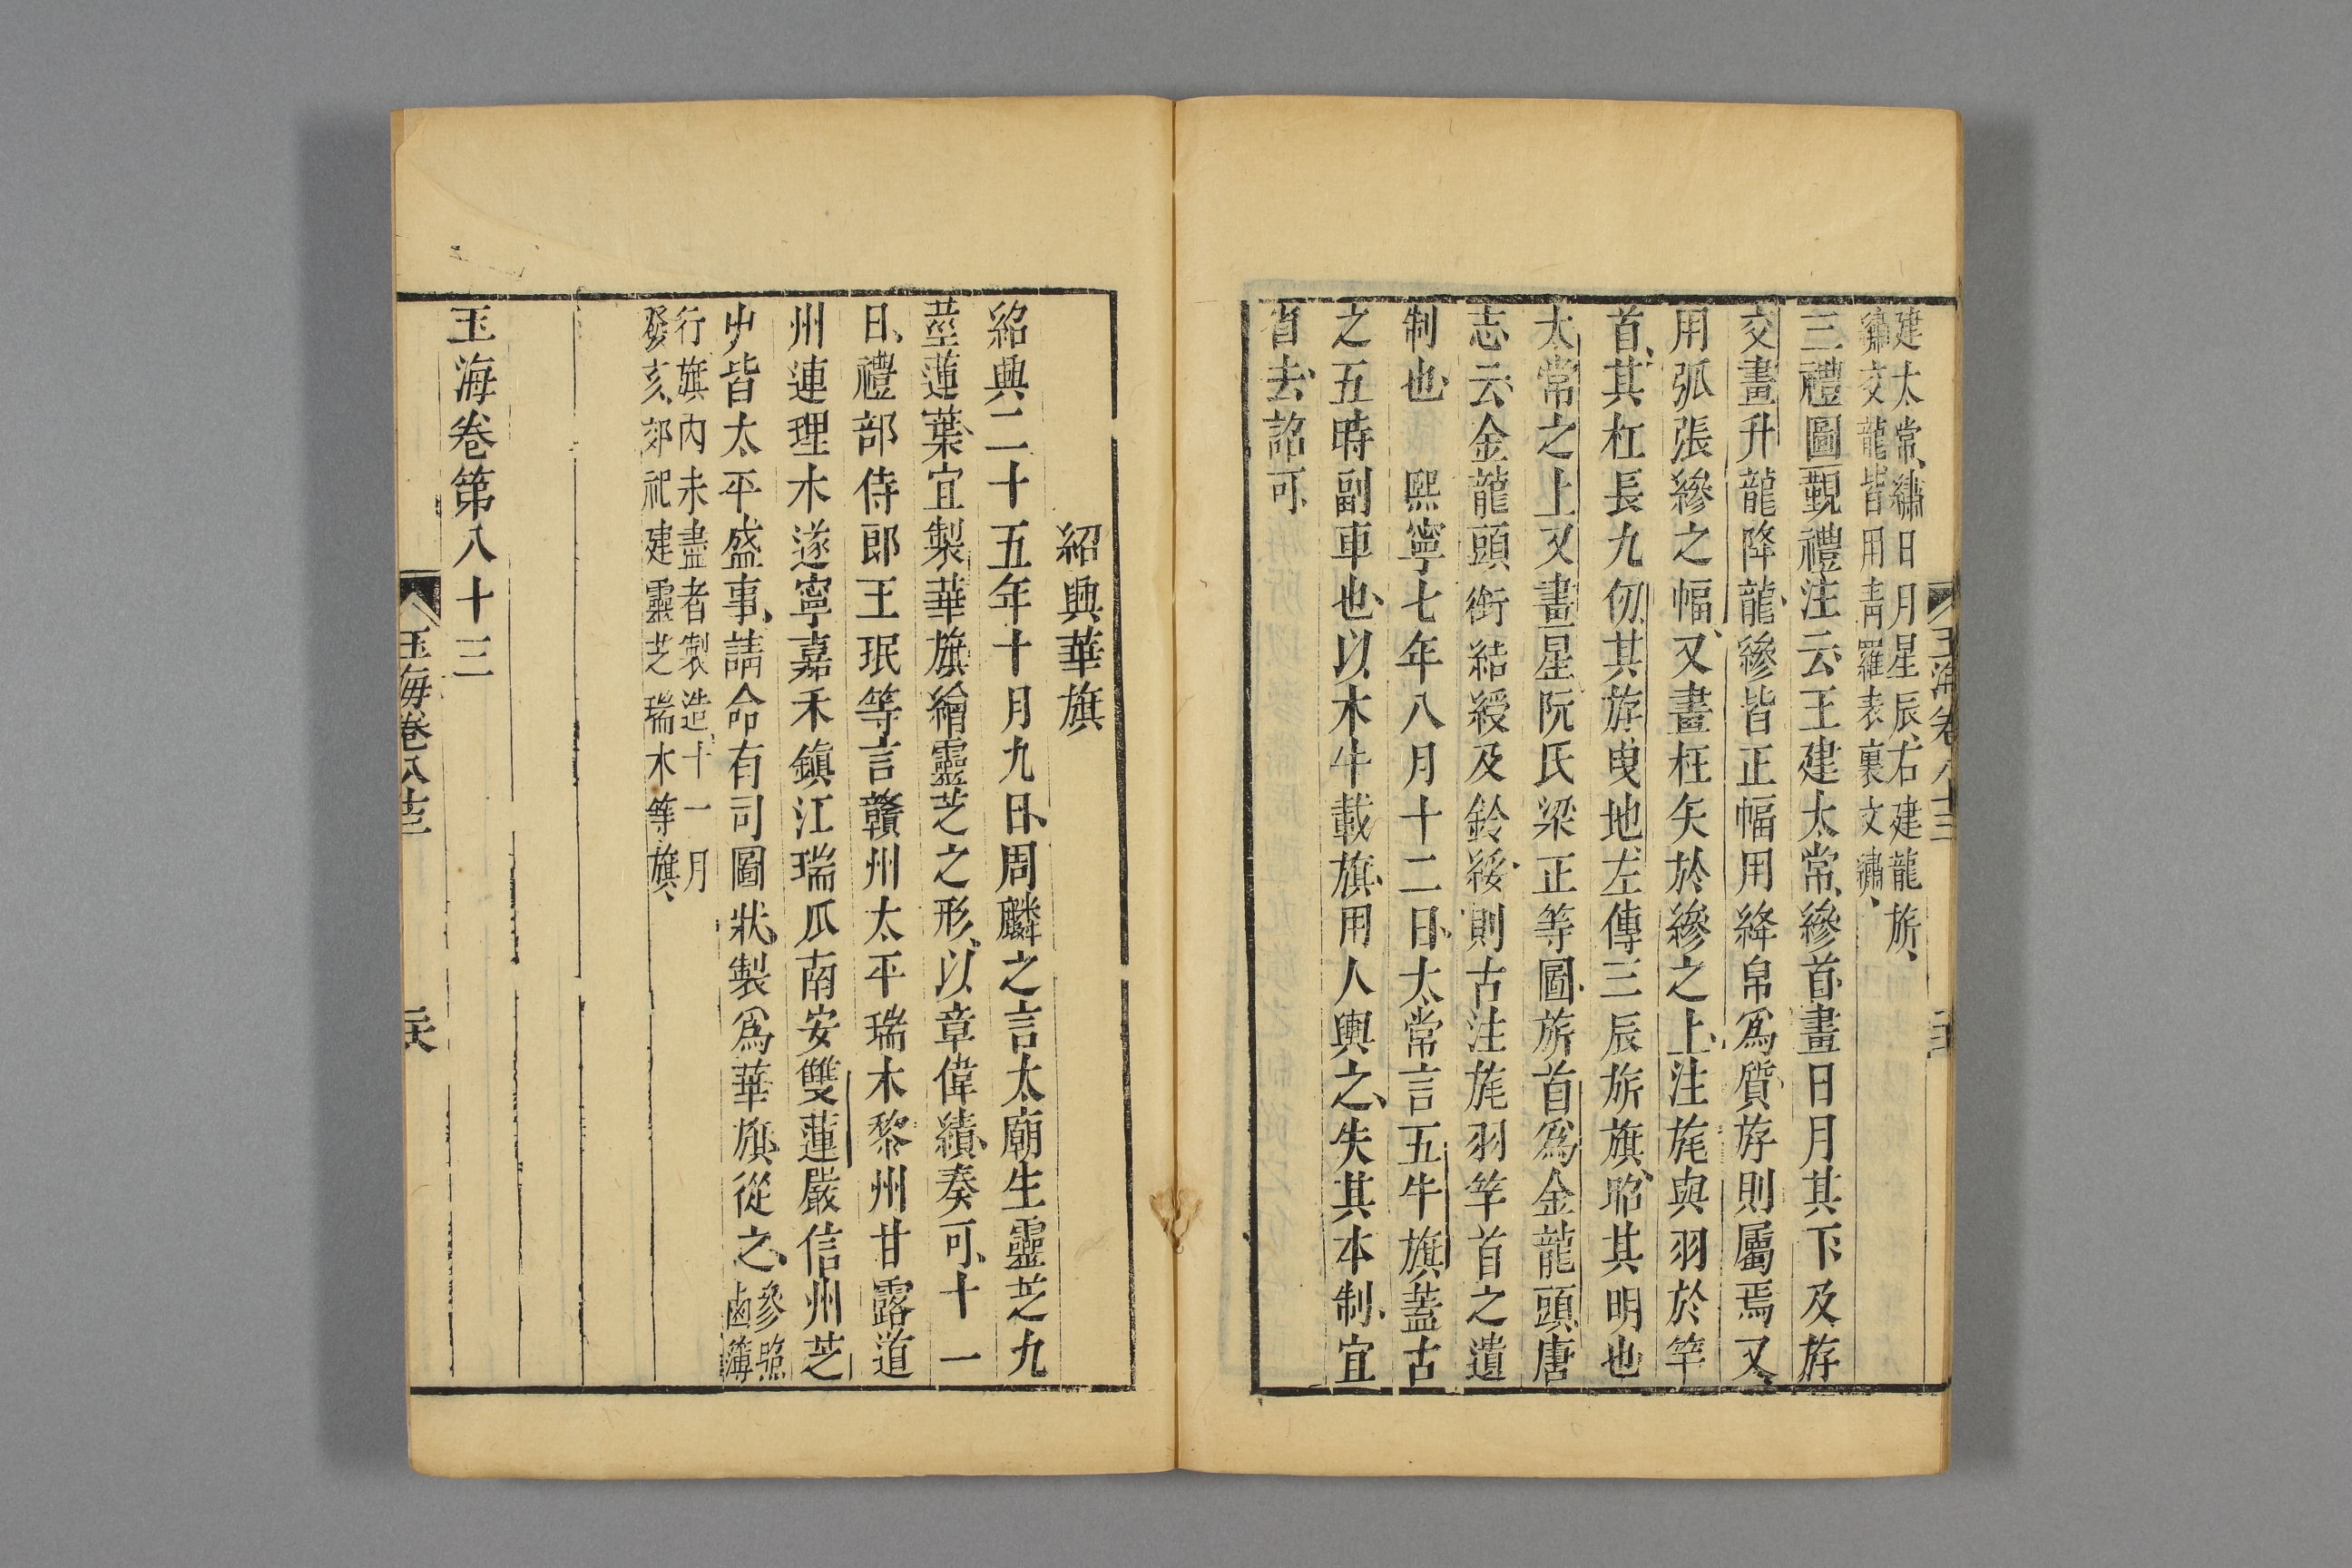 建太常、繡日月星辰、右建龍旂、
繡交龍皆用靑羅表裏文繡、
三禮圖覲禮注云王建太常、縿首畫日月其下及斿
交畫升龍降龍、縿皆正幅用絳帛爲質、斿則屬焉又、
用弧張縿之幅、又畫枉矢於縿之上、注旄與羽於竿
首、其杠長九仞其斿曳地左傳三辰旂旗、昭其明也
太常之上又畫星阮氏梁正等圖、旂首爲金龍頭、唐
志云、金龍頭銜結綬及鈴緌、則古注旄羽竿首之遺
制也、熙寧七年八月十二日、太常言五牛旗、蓋古
之五時副車也、以木牛載旗、用人輿之、失其本制、宜
省去、詔可、
玉海卷八十三
紹興華旗
紹興二十五年十月九日、周麟之言太廟生靈芝九
莖蓮葉、宜製華旗繪靈芝之形、以章偉績、奏可、十一
日、禮部侍郎王珉等言贛州太平瑞木黎州甘露道
州連理木遂寧嘉禾鎭江瑞瓜南安雙蓮嚴信州芝
艸皆太平盛事、請命有司圖狀、製爲華旗、從之、參照
鹵簿
行旗內未盡者製造、十一月
癸亥、郊祀建靈芝瑞木等旗、
玉海卷第八十三
玉海卷八十三